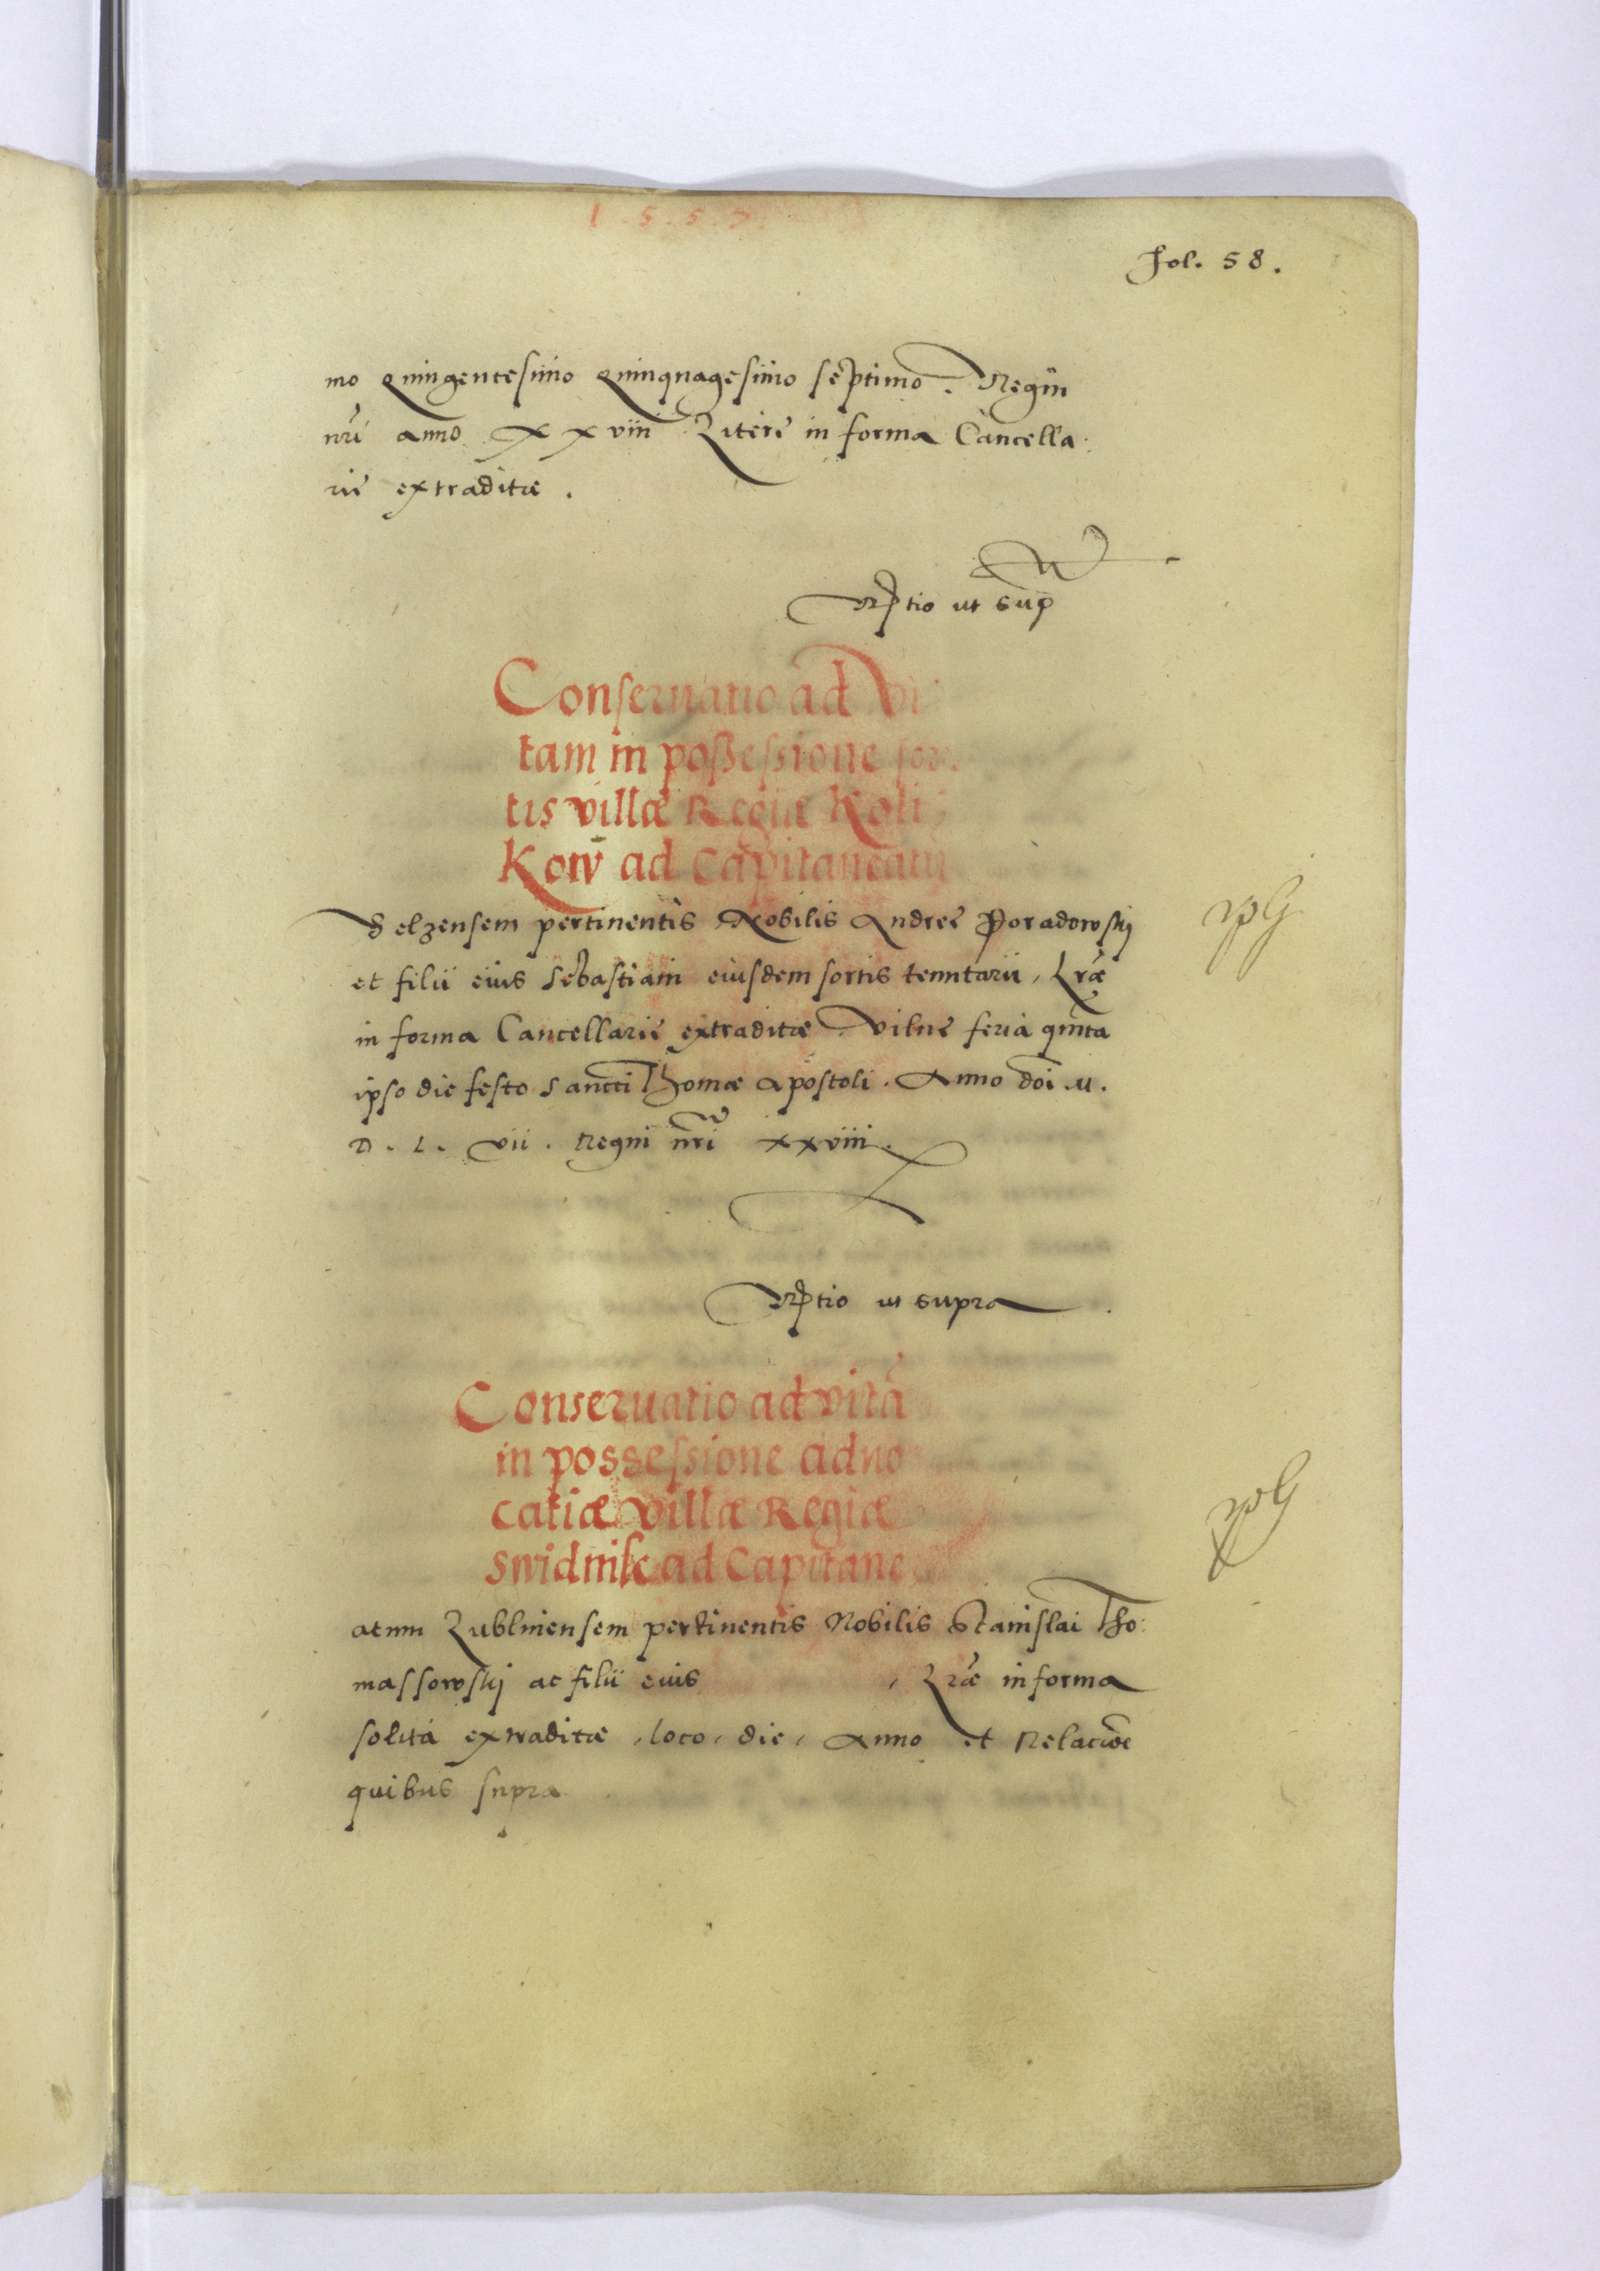 1.5.5.7.
Fol. 58.
mo Quingentesimo Quinquagesimo septimo. Regni
nri anno XXviii Litere in forma Cancella
rie extraditæ.
Rptio ut sup
Conseruatio ad Vi
tam in possessione sor
tis villæ Regiæ Koli
Kow ad Capitaneatū
Belzensem pertinentis Nobilis Andree Poradowskj
et filii eius Sebastiani eiusdem sortis tenutarii, Lræ
in forma Cancellarie extraditæ Vilne feria quinta
ipso die festo Sancti Thomæ Apostoli. Anno doi. M.
D. L. vii. Regni nri xxviii.
Rptio ut supra
Conseruatio ad vitā
in possessione aduo
catiæ villæ Regiæ
Swidnik ad Capitane
atum Lubliniensem pertinentis Nobilis Stanislai Tho:
massowskj ac filii eius , Lræ in forma
solita extraditæ, loco, die, Anno et Relacioe
quibus supra